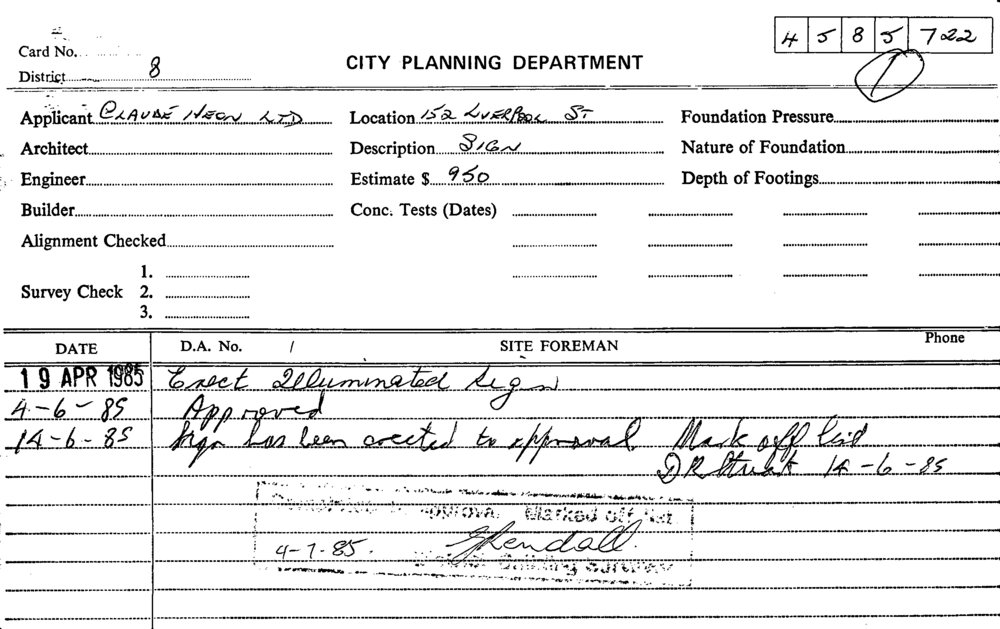 4 5 8 5 722
Card No.
District 8
CITY PLANNING DEPARTMENT
1
Applicant CLAUDE NEON LTD
Location 152 LIVERPOOL ST
Foundation Pressure
Architect
Description SIGN
Nature of Foundation
Engineer
Estimate $ 950
Depth of Footings
Builder
Conc. Tests (Dates)
Alignment Checked
Survey Check 1.
2.
3.
DATE D.A. No. / SITE FOREMAN Phone
19 APR 1985 Erect Illuminated Sign
4-6-85 Approved
14-6-85 Sign has been erected to approval Mark off list
14-6-85
approval Marked off list
4-7-85. Kendall
Building Surveyor